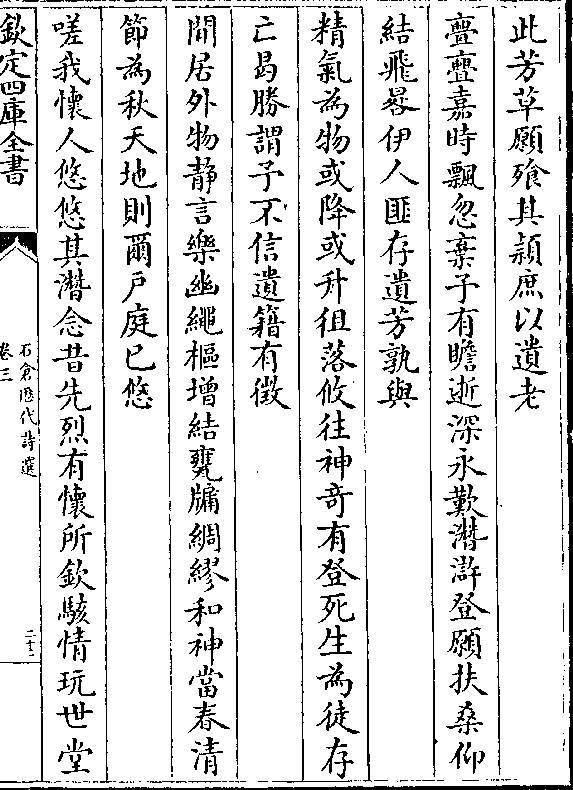 此芳草願飱其穎庶以遺老
亹亹嘉時飄忽棄予有瞻逝深永歎潛滸登願扶桑仰
結飛晷伊人匪存遺芳孰與
精氣為物或降或升徂落攸往神奇有登死生為徒存
亡曷勝謂予不信遺籍有徴
閒居外物静言樂幽繩樞增結甕牖綢繆和神當春清
節為秋天地則爾戸庭已悠
嗟我懷人悠悠其潛念昔先烈有懷所欽駭情玩世堂
欽定四庫全書
石倉歴代詩選
卷三
二十二